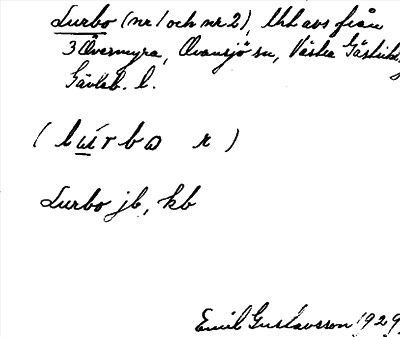 Lurbo (nr 1 och nr 2), lht avs från
3 Övermyra, Ovansjö sn, Västra Gästrikl.
Gävleb. l.
( l ú r b ω r )
Lurbo jb, kb
Emil Gustavsson 1929